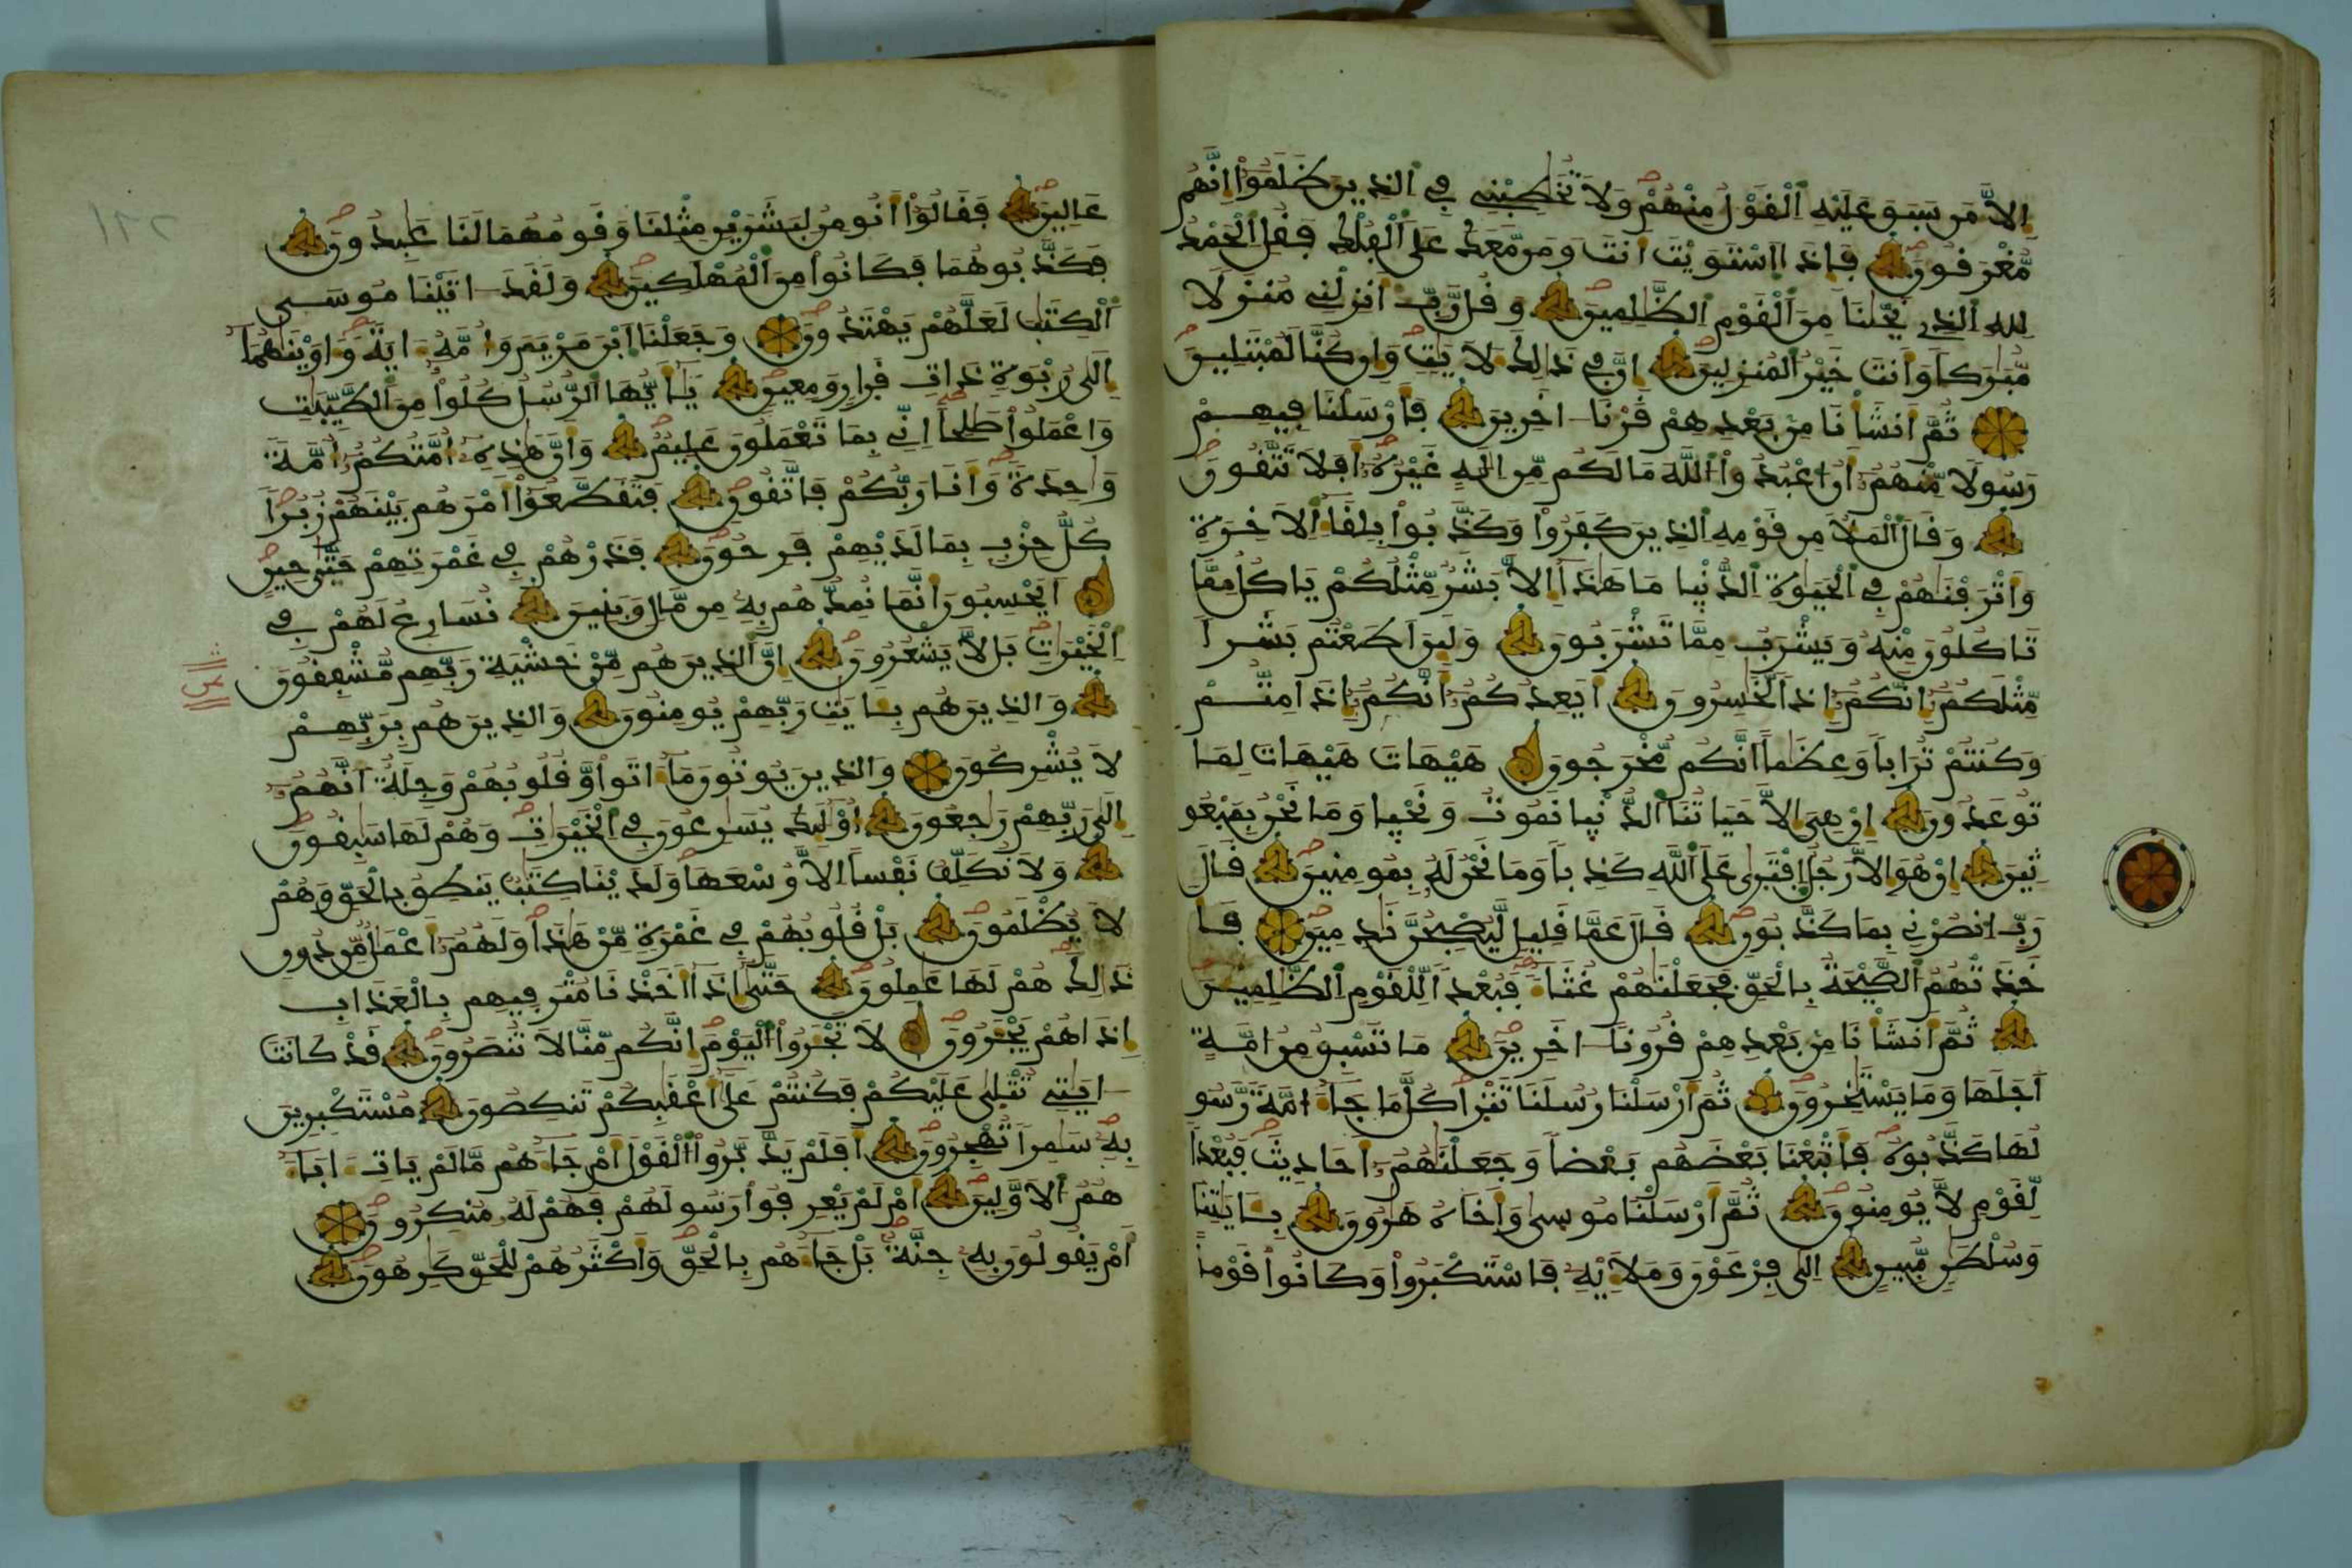 إِلاَّ مَن سَبَقَ عَلَيْهِ اِ۬لْقَوْلُ مِنْهُمْ وَلَا تُخَٰطِبْنِے فِے اِ۬لذِينَ ظَلَمُوٓاْ إِنَّهُم
مُّغْرَقُونَ فَإِذَا اَ۪سْتَوَيْتَ أَنتَ وَمَن مَّعَكَ عَلَى اَ۬لْفُلْكِ فَقُلِ اِ۬لْحَمْدُ
لِلهِ اِ۬لذِے نَجَّيٰنَا مِنَ اَ۬لْقَوْمِ اِ۬لظَّٰلِمِينَ وَقُل رَّبِّ أَنزِلْنِے مُنزَلاٗ
مُّبَٰرَكاٗ وَأَنتَ خَيْرُ اُ۬لْمُنزِلِينَ إِنَّ فِے ذَٰلِكَ لَأٓيَٰتٖ وَإِن كُنَّا لَمُبْتَلِينَ
ثُمَّ أَنشَأْنَا مِنۢ بَعْدِهِمْ قَرْناً ءَاخَرِينَ فَأَرْسَلْنَا فِيهِمْ
رَسُولاٗ مِّنْهُمُۥٓ أَنُ اُ۟عْبُدُواْ اُ۬للَّهَ مَا لَكُم مِّنِ اِلَٰهٍ غَيْرُهُۥٓ أَفَلَا تَتَّقُونَ
وَقَالَ اَ۬لْمَلَأُ مِن قَوْمِهِ اِ۬لذِينَ كَفَرُواْ وَكَذَّبُواْ بِلِقَآءِ اِ۬لَاخِرَةِ
وَأَتْرَفْنَٰهُمْ فِے اِ۬لْحَيَوٰةِ اِ۬لدُّنْي۪ا مَا هَٰذَآ إِلَّا بَشَرٞ مِّثْلُكُمْ يَاكُلُ مِمَّا
تَاكُلُونَ مِنْهُ وَيَشْرَبُ مِمَّا تَشْرَبُونَ وَلَئِنَ اَطَعْتُم بَشَراٗ
مِّثْلَكُمُۥٓ إِنَّكُمُۥٓ إِذاٗ لَّخَٰسِرُونَ أَيَعِدُكُمُۥٓ أَنَّكُمُۥٓ إِذَا مِتُّمْ
وَكُنتُمْ تُرَاباٗ وَعِظَٰماً اَنَّكُم مُّخْرَجُونَ هَيْهَاتَ هَيْهَاتَ لِمَا
تُوعَدُونَ إِنْ هِيَ إِلَّا حَيَاتُنَا اَ۬لدُّنْي۪ا نَمُوتُ وَنَحْي۪ا وَمَا نَحْنُ بِمَبْعُو
ثِينَ إِنْ هُوَ إِلَّا رَجُلٌ اِ۪فْتَر۪يٰ عَلَى اَ۬للَّهِ كَذِباٗ وَمَا نَحْنُ لَهُۥ بِمُومِنِينَ قَالَ
رَبِّ اِ۟نصُرْنِے بِمَا كَذَّبُونِ قَالَ عَمَّا قَلِيلٖ لَّيُصْبِحُنَّ نَٰدِمِينَ فَأَ
خَذَتْهُمُ اُ۬لصَّيْحَةُ بِالْحَقِّ فَجَعَلْنَٰهُمْ غُثَآءٗ فَبُعْداٗ لِّلْقَوْمِ اِ۬لظَّٰلِمِينَ
ثُمَّ أَنشَأْنَا مِنۢ بَعْدِهِمْ قُرُوناً ءَاخَرِينَ مَا تَسْبِقُ مِنُ امَّةٍ
اَجَلَهَا وَمَا يَسْتَٰخِرُونَ ثُمَّ أَرْسَلْنَا رُسُلَنَا تَتْر۪ا كُلَّ مَا جَآءَ امَّةٗ رَّسُو
لُهَا كَذَّبُوهُ فَأَتْبَعْنَا بَعْضَهُم بَعْضاٗ وَجَعَلْنَٰهُمُۥٓ أَحَادِيثَ فَبُعْداٗ
لِّقَوْمٖ لَّا يُومِنُونَ ثُمَّ أَرْسَلْنَا مُوس۪يٰ وَأَخَاهُ هَٰرُونَ بِـَٔايَٰتِنَا
وَسُلْطَٰنٖ مُّبِينٍ إِلَىٰ فِرْعَوْنَ وَمَلَإِيْهِۦ فَاسْتَكْبَرُواْ وَكَانُواْ قَوْماً
عَالِينَ فَقَالُوٓاْ أَنُومِنُ لِبَشَرَيْنِ مِثْلِنَا وَقَوْمُهُمَا لَنَا عَٰبِدُونَ
فَكَذَّبُوهُمَا فَكَانُواْ مِنَ اَ۬لْمُهْلَكِينَ وَلَقَدَ اٰتَيْنَا مُوسَى
اَ۬لْكِتَٰبَ لَعَلَّهُمْ يَهْتَدُونَ وَجَعَلْنَا اَ۪بْنَ مَرْيَمَ وَأُمَّهُۥٓ ءَايَةٗ وَءَاوَيْنَٰهُمَآ
إِلَىٰ رُبْوَةٖ ذَاتِ قَرَارٖ وَمَعِينٖ يَٰٓأَيُّهَا اَ۬لرُّسُلُ كُلُواْ مِنَ اَ۬لطَّيِّبَٰتِ
وَاعْمَلُواْ صَٰلِحاً اِنِّے بِمَا تَعْمَلُونَ عَلِيمٞ وَأَنَّ هَٰذِهِۦٓ أُمَّتُكُمُۥٓ أُمَّةٗ
وَٰحِدَةٗ وَأَنَا رَبُّكُمْ فَاتَّقُونِ فَتَقَطَّعُوٓاْ أَمْرَهُم بَيْنَهُمْ زُبُراٗ
كُلُّ حِزْبِۢ بِمَا لَدَيْهِمْ فَرِحُونَ فَذَرْهُمْ فِے غَمْرَتِهِمْ حَتَّىٰ حِينٍ
اَيَحْسِبُونَ أَنَّمَا نُمِدُّهُم بِهِۦ مِن مَّالٖ وَبَنِينَ نُسَارِعُ لَهُمْ فِے
اِ۬لْخَيْرَٰتِ بَل لَّا يَشْعُرُونَ إِنَّ اَ۬لذِينَ هُم مِّنْ خَشْيَةِ رَبِّهِم مُّشْفِقُونَ
وَالذِينَ هُم بِـَٔايَٰتِ رَبِّهِمْ يُومِنُونَ وَالذِينَ هُم بِرَبِّهِمْ
لَا يُشْرِكُونَ وَالذِينَ يُوتُونَ مَآ ءَاتَواْ وَّقُلُوبُهُمْ وَجِلَةٌ اَنَّهُمُۥٓ
إِلَىٰ رَبِّهِمْ رَٰجِعُونَ أُوْلَٰٓئِكَ يُسَٰرِعُونَ فِے اِ۬لْخَيْرَٰتِ وَهُمْ لَهَا سَٰبِقُونَ
وَلَا نُكَلِّفُ نَفْساً اِلَّا وُسْعَهَا وَلَدَيْنَا كِتَٰبٞ يَنطِقُ بِالْحَقِّ وَهُمْ
لَا يُظْلَمُونَ بَلْ قُلُوبُهُمْ فِے غَمْرَةٖ مِّنْ هَٰذَا وَلَهُمُۥٓ أَعْمَٰلٞ مِّن دُونِ
ذَٰلِكَ هُمْ لَهَا عَٰمِلُونَ حَتَّىٰٓ إِذَآ أَخَذْنَا مُتْرَفِيهِم بِالْعَذَابِ
إِذَا هُمْ يَجْـَٔرُونَ لَا تَجْـَٔرُواْ اُ۬لْيَوْمَ إِنَّكُم مِّنَّا لَا تُنصَرُونَ قَدْ كَانَتَ
اٰيَٰتِے تُتْلَىٰ عَلَيْكُمْ فَكُنتُمْ عَلَىٰٓ أَعْقَٰبِكُمْ تَنكِصُونَ مُسْتَكْبِرِينَ
بِهِۦ سَٰمِراٗ تُهْجِرُونَ أَفَلَمْ يَدَّبَّرُواْ اُ۬لْقَوْلَ أَمْ جَآءَهُم مَّا لَمْ يَاتِ ءَابَآءَ
هُمُ اُ۬لَاوَّلِينَ أَمْ لَمْ يَعْرِفُواْ رَسُولَهُمْ فَهُمْ لَهُۥ مُنكِرُونَ
أَمْ يَقُولُونَ بِهِۦ جِنَّةُۢ بَلْ جَآءَهُم بِالْحَقِّ وَأَكْثَرُهُمْ لِلْحَقِّ كَٰرِهُونَ